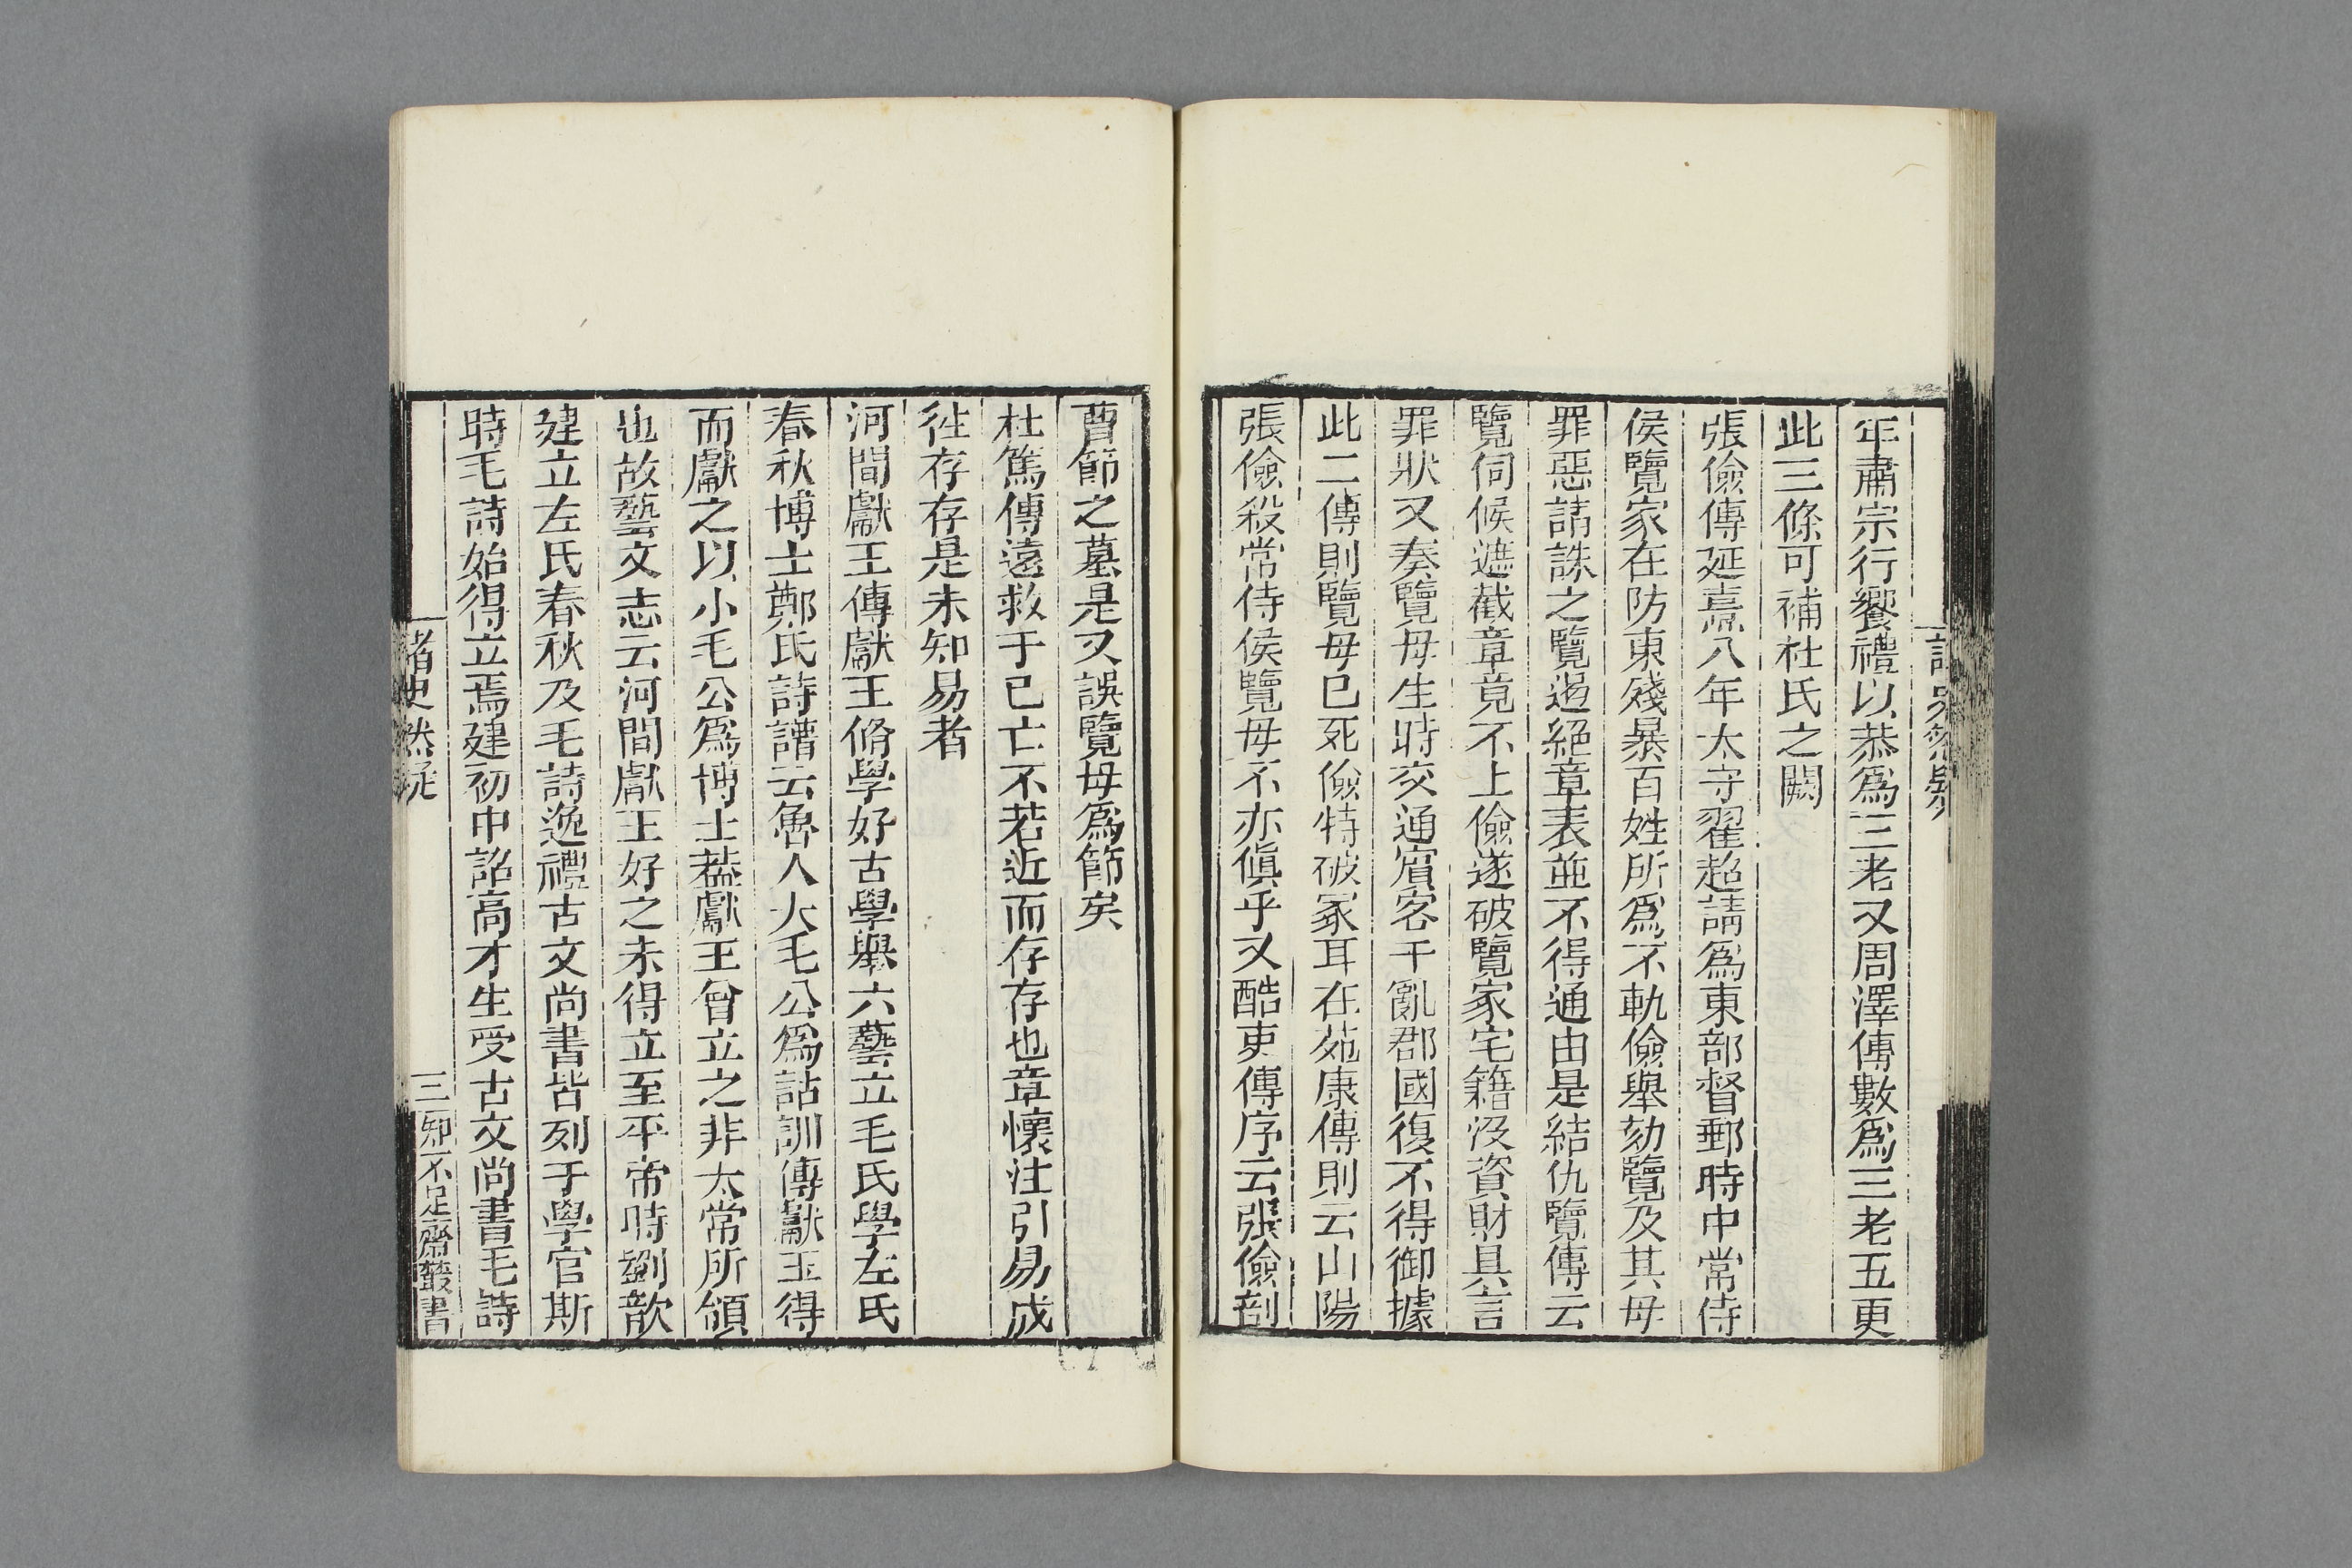 年肅宗行饗禮以恭爲三老又周澤傳數爲三老五更
此三條可補杜氏之闕
張儉傳延熹八年太守翟超請爲東部督郵時中常侍
侯覽家在防東殘暴百姓所爲不軌儉舉劾覽及其母
罪惡請誅之覽遏絕章表並不得通由是結仇覽傳云
覽伺候遮截章竟不上儉遂破覽家宅籍沒資財具言
罪狀又奏覽母生時交通賓客干亂郡國復不得御據
此二傳則覽母已死儉特破冢耳在苑康傳則云山陽
張儉殺常侍侯覽母不亦傎乎又酷吏傳序云張儉剖
曹節之墓是又誤覽母爲節矣
杜篤傳遠救于已亡不若近而存存也章懷注引易成
性存存是未知易者
河間獻王傳獻王脩學好古學舉六藝立毛氏學左氏
春秋博士鄭氏詩譜云魯人大毛公爲詁訓傳獻王得
而獻之以小毛公爲博士葢獻王曾立之非太常所領
也故藝文志云河間獻王好之未得立至平帝時劉歆
建立左氏春秋及毛詩逸禮古文尚書皆列于學官斯
時毛詩始得立焉建初中詔高才生受古文尚書毛詩
諸史然疑
三
知不足齋叢書